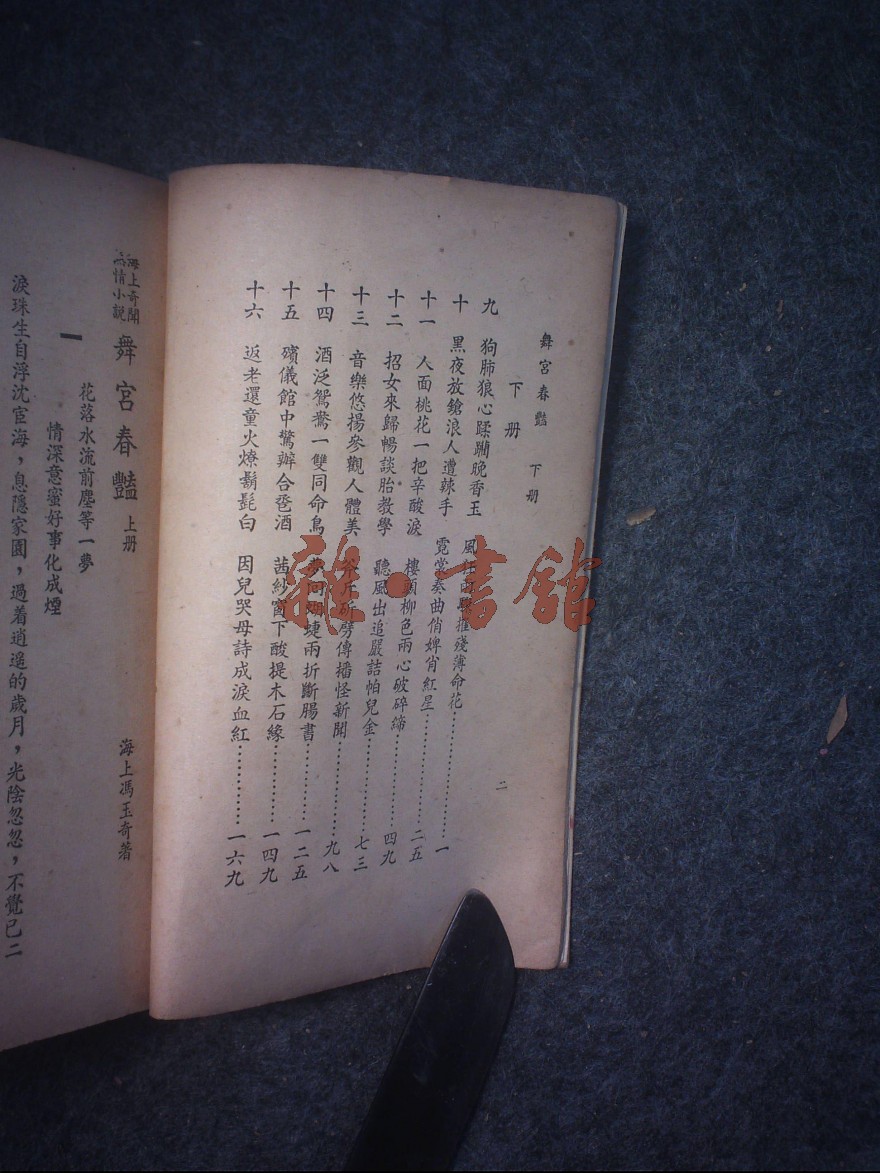 舞宮春豔 下册
下册
九 狗肺狼心蹂躪晚香玉 風狂雨驟摧殘薄命花 一
十 黑夜放鎗浪人遭辣手 霓裳奏曲俏婢肖紅星 二五
十一 人面桃花一把辛酸淚 樓頭柳色兩心破碎締 四九
十二 招女來歸暢談胎教學 聽風出追嚴詰帕兒金 七三
十三 音樂悠揚參觀人體美 斧斤斫劈傳播怪新聞 九八
十四 酒泛鴛鴦一雙同命鳥 蝶兩折斷腸書 一二五
十五 殯儀館中驚辦合卺酒 茜紗窗下酸提木石緣 一四九
十六 返老還童火燎鬍髭白 因兒哭母詩成淚血紅 一六九
二
海上奇聞
情小說
舞宮春豔 上册
海上馮玉奇著
一
花落水流前塵等一夢
情深意蜜好事化成煙
淚珠生自浮沈宦海，息隱家園，過着逍遥的歲月，光陰忽忽，不覺已二
雜·書館